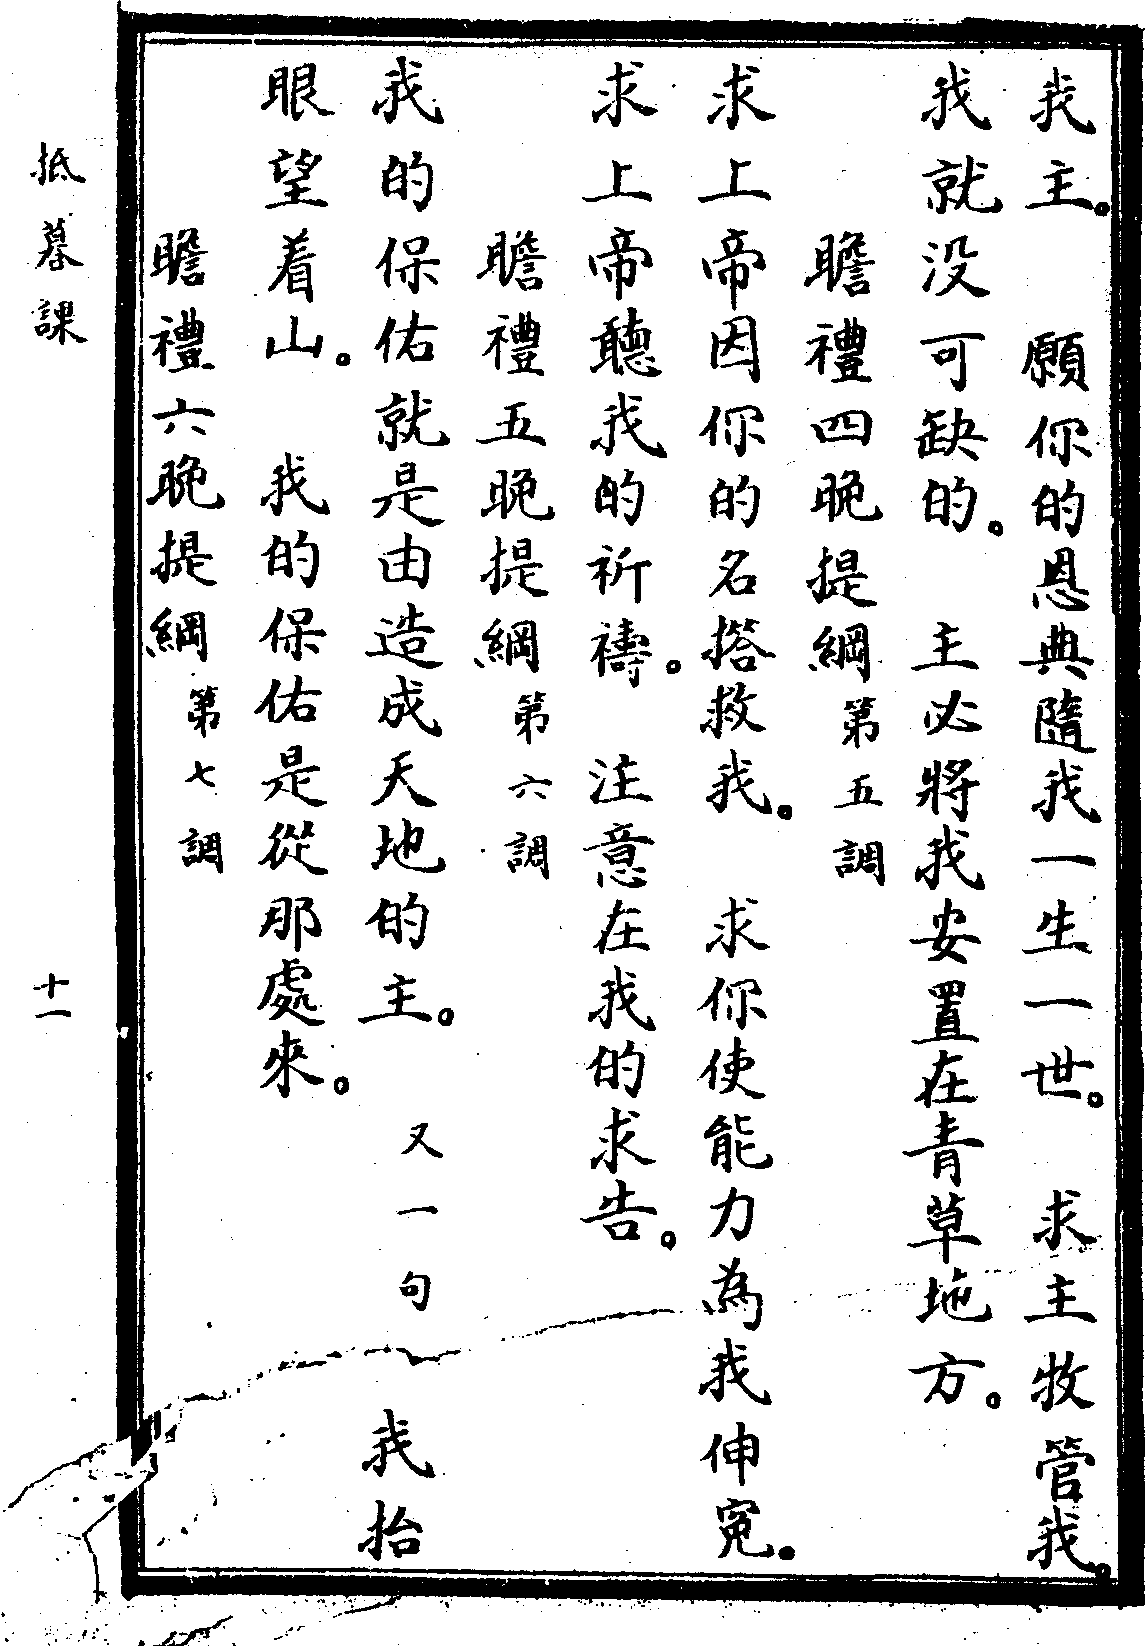 我主。　願你的恩典隨我一生一世。　求主牧管我。
我就没可缺的。　主必將我安置在青草地方。
瞻禮四晚提綱　第五調
求上帝因你的名搭救我。　求你使能力為我伸寃。
求上帝聽我的祈禱。　注意在我的求告。
瞻禮五晚提綱　第六調
我的保佑就是由造成天地的主。　又一句、　我抬
眼望着山。　我的保佑是從那處來。
瞻禮六晚提綱　第七調
抵暮課　十一